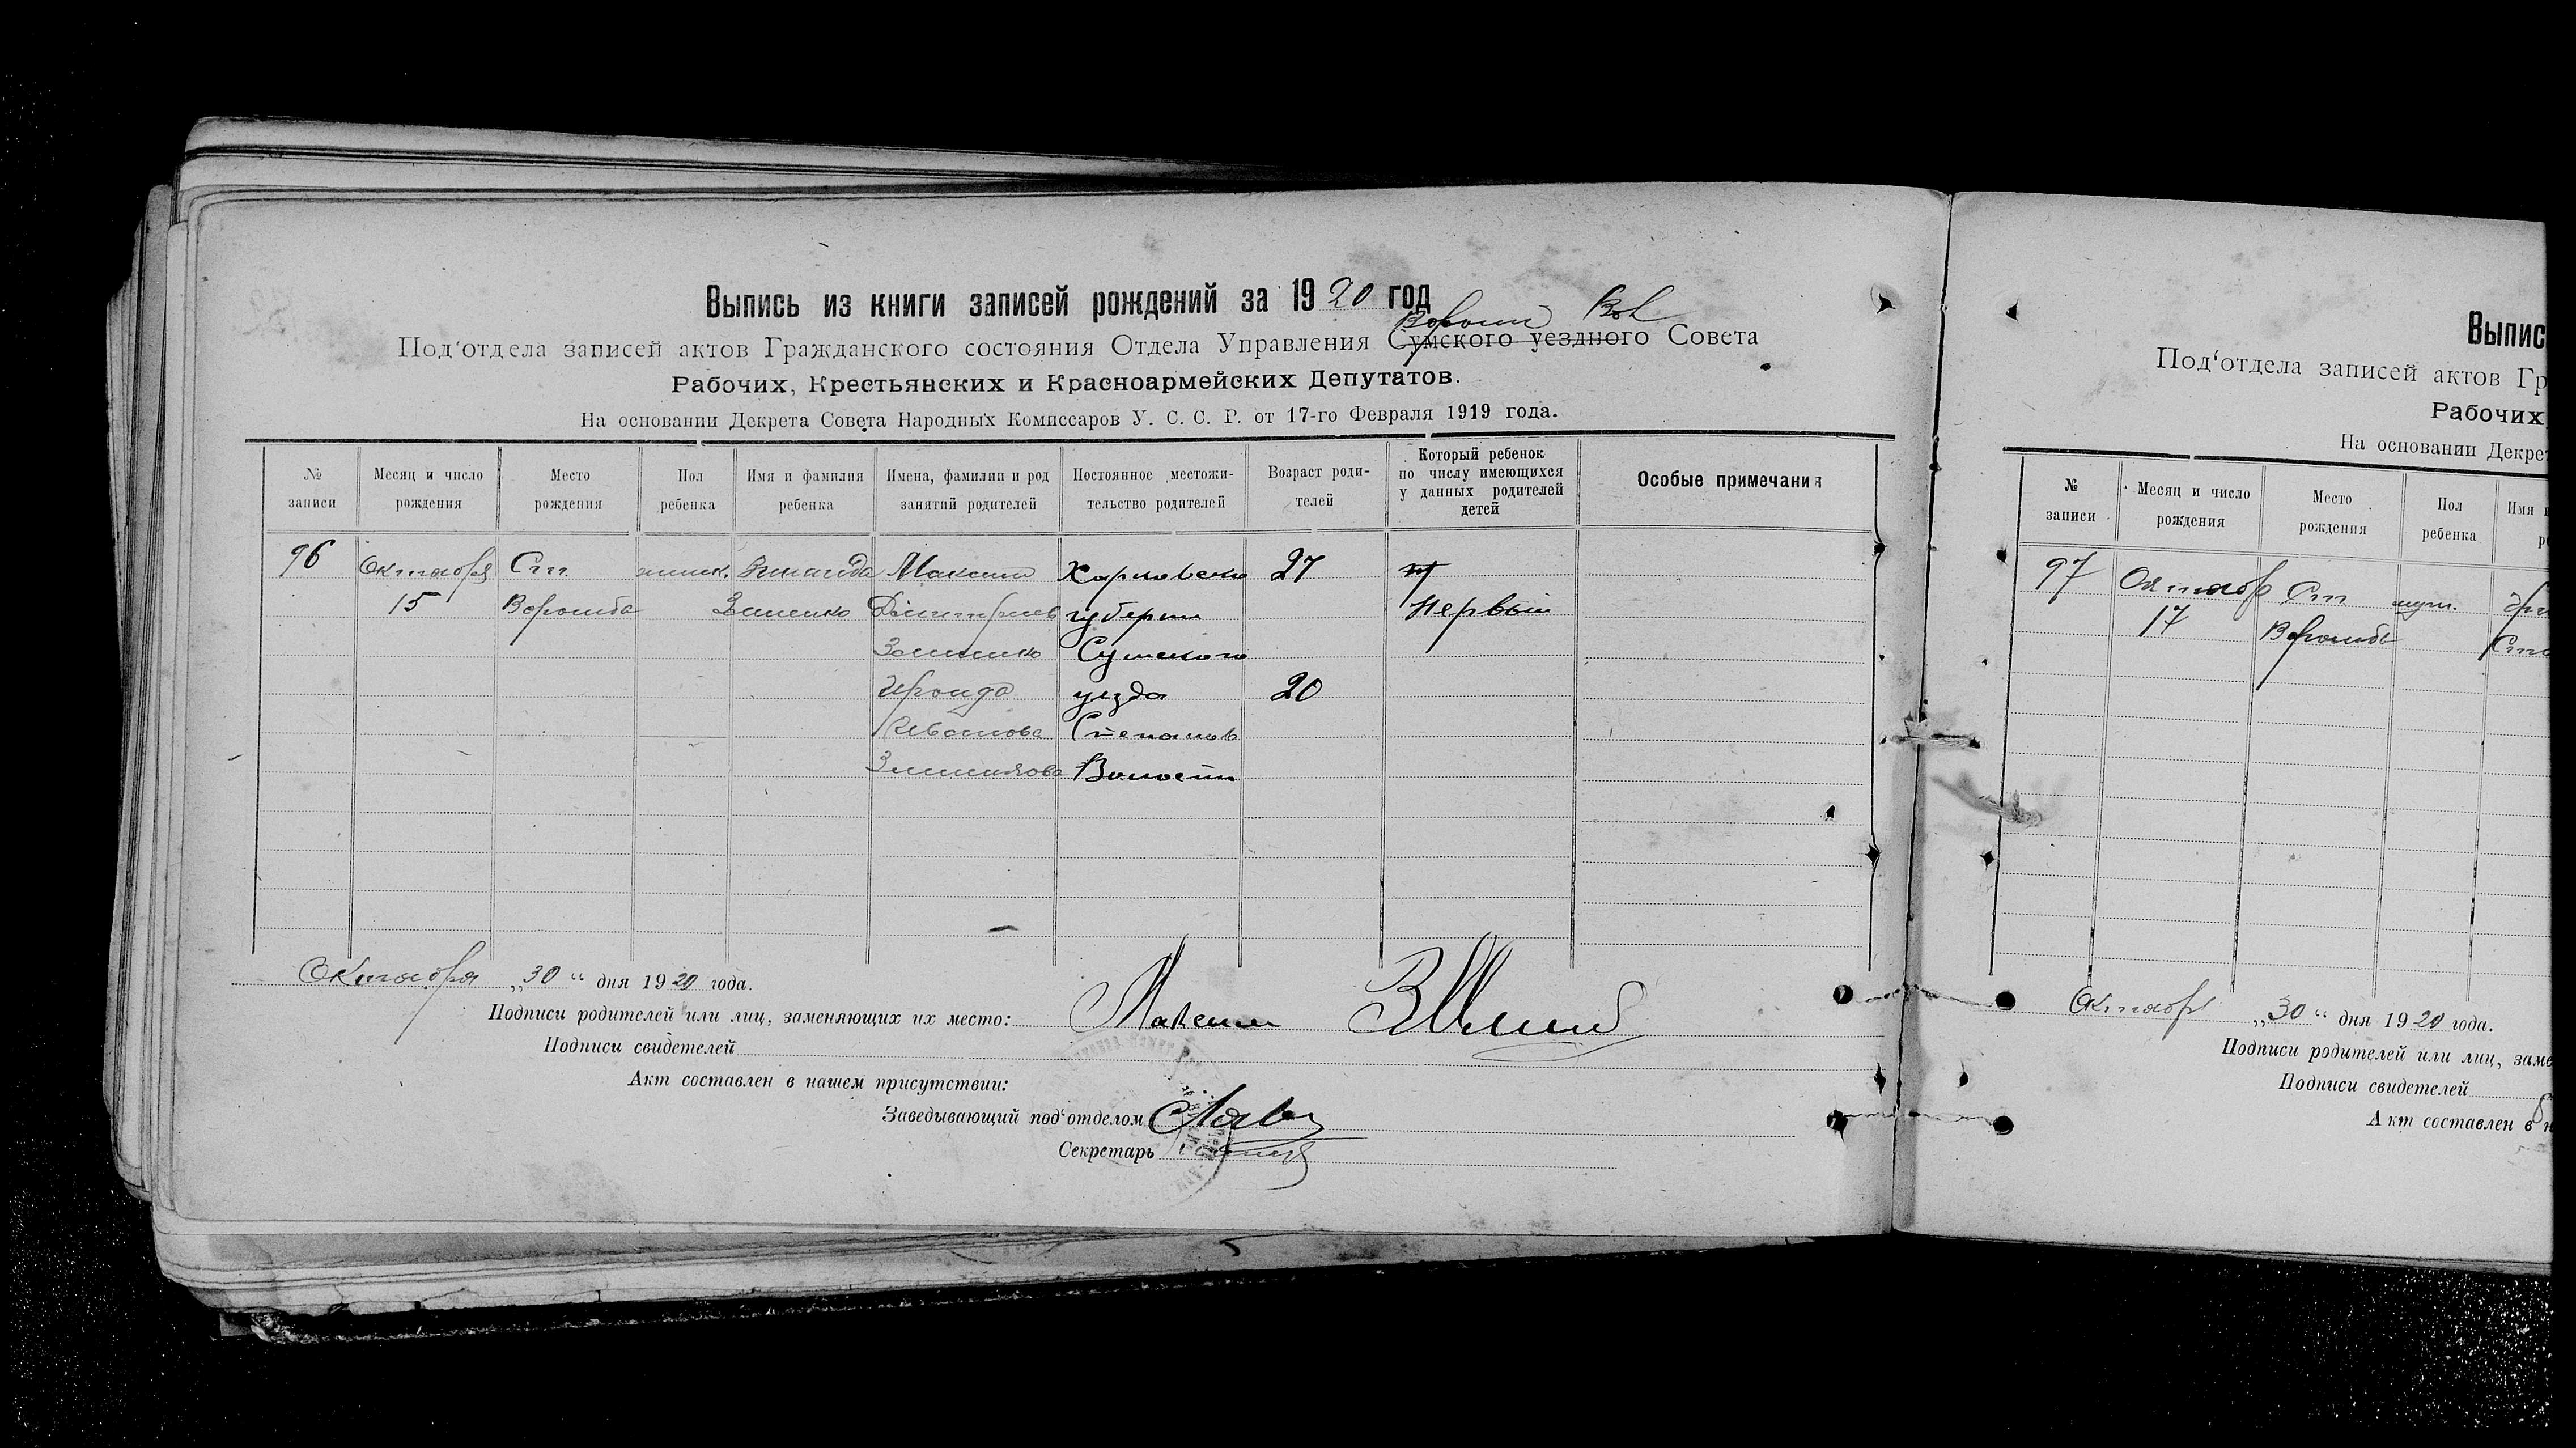 Выпись из книги записей рождений за 1920 год
Ворожб Вол
Под'отдела записей актов Гражданского состояния Отдела Управления Сумского уездного Совета
Рабочих, Крестьянских и Красноармейских Депутатов.
На основании Декрета Совета Народных Комиссаров У. С. С. Р. от 17-го Февраля 1919 года.
№ записи
Месяц и число рождения
Место рождения
Пол ребенка
Имя и фамилия ребенка
Имена, фамилии и род занятий родителей
Постоянное местожительство родителей
Возраст родителей
Который ребенок по числу имеющихся у данных родителей детей
Особые примечания
96 Октября Ст. женск. Зинаида Максим Харьковской 27
15 Ворожба Дмитриев губернии Первый
Сумского
уезда 20
Иванова Степанов
Волости
Октября „30“ дня 1920 года.
Подписи родителей или лиц, заменяющих их место: Максим
Подписи свидетелей
Акт составлен в нашем присутствии:
Заведывающий под'отделом
Секретарь
Выпис
Под'отдела записей актов Гр
Рабочих,
На основании Декре
№ записи
Месяц и число рождения
Место рождения
Пол ребенка
Имя и
97 Октябр Ст. муж.
17 Ворожба
Октябр „30“ дня 1920 года.
Подписи родителей или лиц, заме
Подписи свидетелей
Акт составлен в н